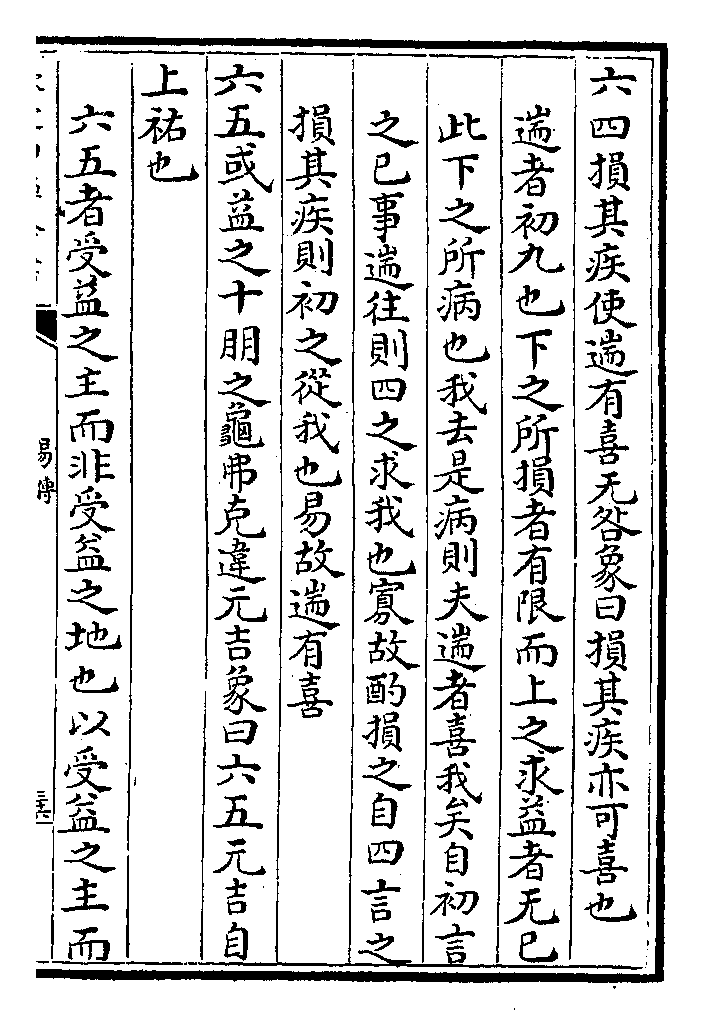 六四損其疾使遄有喜无咎象曰損其疾亦可喜也
遄者初九也下之所損者有限而上之求益者无已
此下之所病也我去是病則夫遄者喜我矣自初言
之已事遄往則四之求我也寡故酌損之自四言之
損其疾則初之從我也易故遄有喜
六五或益之十朋之龜弗克違元吉象曰六五元吉自
上祐也
六五者受益之主而非受益之地也以受益之主而
易傳